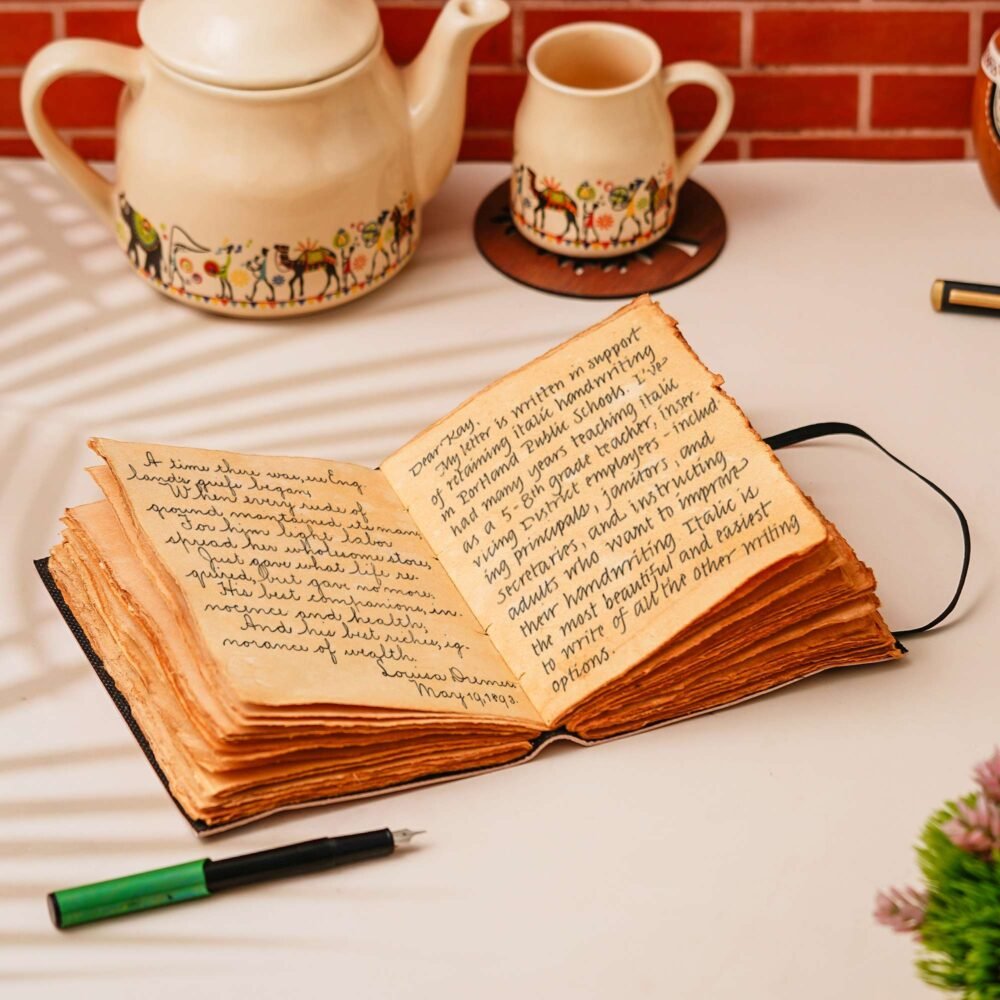 A time there was, ere Eng
lands griefs began,
When every rude of
ground maintained its man
For him light labor
spread her wholesome store,
Just gave what life re-
quired, but gave no more.
His best companions, in
nocence and health,
And his best riches, ig-
norance of wealth.
Louisa
May 19, 1893.
Dear Kay,
My letter is written in support
of retaining italic handwriting
in Portland Public Schools. I've
had many years teaching italic
as a 5-8th grade teacher, inser-
vicing District employees - includ
ing principals, janitors, and
secretaries, and instructing
adults who want to improve
their handwriting. Italic is
the most beautiful and easiest
to write of all the other writing
options.